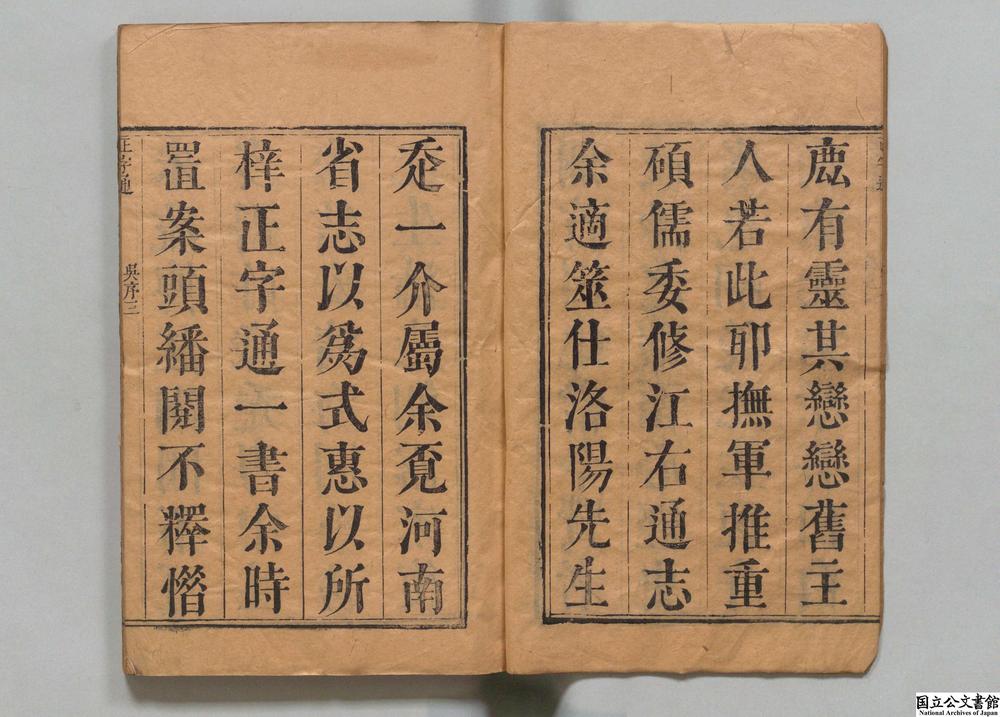 鹿有靈其戀戀舊主
人若此耶撫軍推重
碩儒委修江右通志
余適筮仕洛陽先生
走一介屬余覔河南
省志以爲式惠以所
梓正字通一書余時
置案頭繙閱不釋憯
正字通
吳序三
国立公文書館
National Archives of Japan